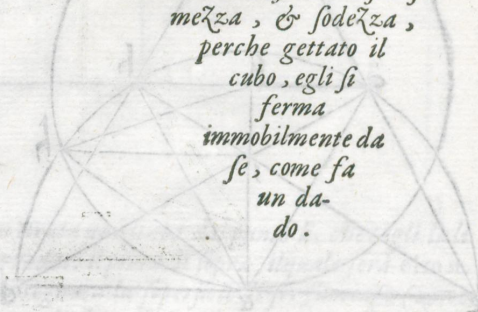 mezza, & sodezza,
perche gettato il
cubo, egli si
ferma
immobilmente da
se, come fa
un da-
do.